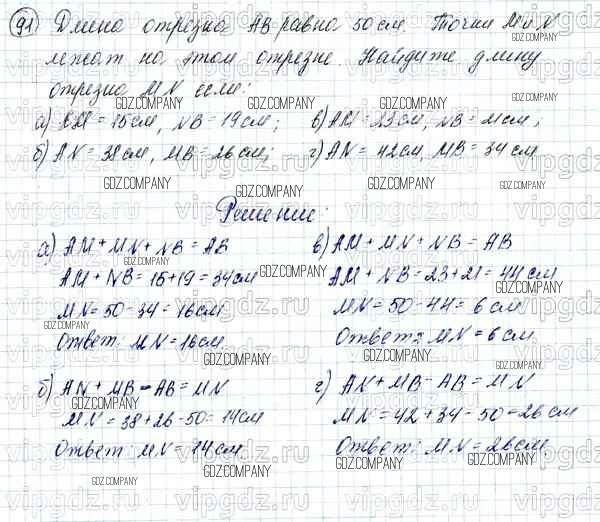 91) Длина отрезка AB равна 50 см. Точки M и N
лежат на этом отрезке. Найдите длину
отрезка MN если:
а) AM = 15 см, NB = 19 см; в) AM = 23 см, NB = 21 см;
б) AN = 38 см, MB = 26 см; г) AN = 42 см, MB = 34 см
Решение:
а) AM + MN + NB = AB
AM + NB = 15 + 19 = 34 см
MN = 50 - 34 = 16 см
Ответ: MN = 16 см.
б) AN + MB - AB = MN
MN = 38 + 26 - 50 = 14 см
Ответ: MN = 14 см.
в) AM + MN + NB = AB
AM + NB = 23 + 21 = 44 см
MN = 50 - 44 = 6 см
Ответ: MN = 6 см
г) AN + MB - AB = MN
MN = 42 + 34 - 50 = 26 см
Ответ: MN = 26 см.
GDZ.COMPANY
vipgdz.ru